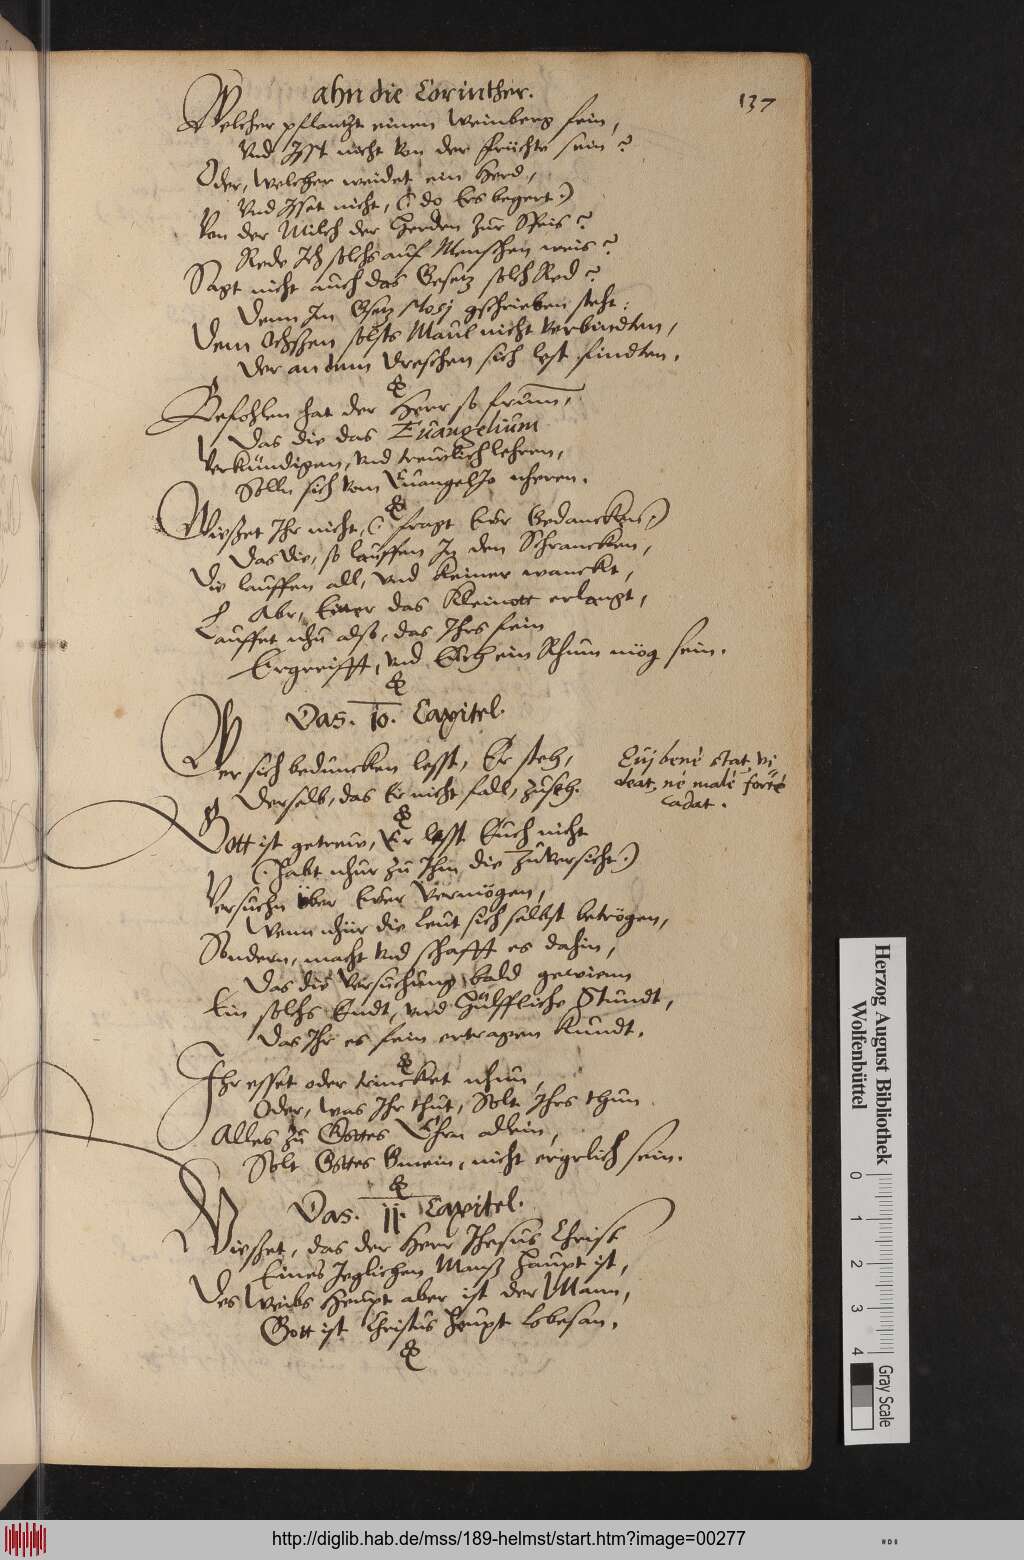 ahn die Corinther.
137
Welcher pflantzt einen Weinberg fein,
Vnd Isst nicht von der früchte sein?
Oder, welcher weidet ein Herd,
Vnd Isset nicht, (: do Ers begert :)
Von der Milch der Herden zur Speis?
Rede Ich solchs auf Menschen weis?
Sagt nicht auch das Gesetz solch Red?
Denn Im Gsetz Mosj gschrieben steht:
Dem Ochssen solsts Maul nicht verbindten,
Der an dem dreschen sich lest findten.
Befohlen hat der Herr so frumm,
Das die das Euangelium
Verkündigen, vnd treulich lehren,
Solln sich vom Euangelio nheren.
Wiesset Ihr nicht, (: fragt Eur Gedancken :)
Das die, so lauffen In den Schrancken,
Die lauffen all, vnd keiner wanckt,
Abr, Einer das Kleinott erlangt,
Lauffet nhu also, das Ihrs fein
Ergreifft, vnd Euch ein Rhum mög sein.
Das. 10. Capitel.
Wer sich beduncken lesst, Er steh,
Derselb, das Er nicht fall, zuseh.
Cuj bene stat, vi
deat, ne male forte
cadat.
Gott ist getreuw, Er lesst Euch nicht
(: habt nhur zu Ihm die Zuversicht :)
Versuchn über Euer Vermögen,
Wenn nhur die leut sich selbst betrögen,
Sondern, macht vnd schafft es dahin,
Das die Versuchung bald gewinn
Ein solchs Endt, vnd hülffliche Stundt,
Das Ihr es fein ertragen kundt.
Ihr esset oder trincket nhun,
Oder, was Ihr thut, Solt Ihrs thun
Alles zu Gottes Ehrn allein,
Solt Gottes Gmein, nicht ergrlich sein.
Das. 11. Capitel.
Wiesset, das der Herr Jhesus Christ
Eines Jeglichen Mans haupt ist,
Des Weibs Heupt aber ist der Mann,
Gott ist Christus Heupt lobesan.
Herzog August Bibliothek
Wolfenbüttel
0 1 2 3 4
Gray Scale
http://diglib.hab.de/mss/189-helmst/start.htm?image=00277